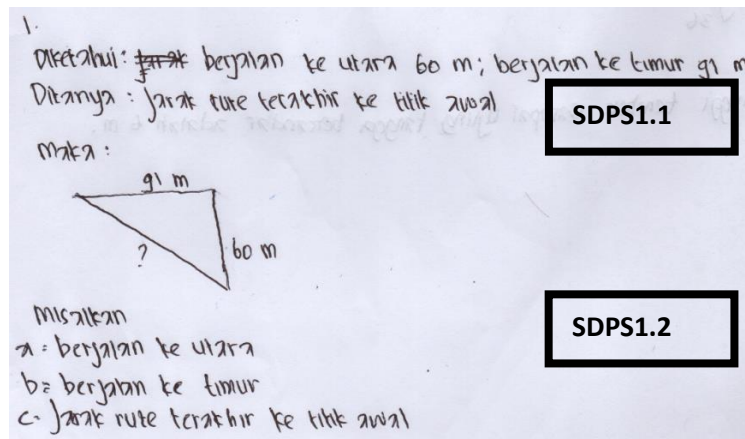 1.
Diketahui: berjalan ke utara 60 m; berjalan ke timur 91 m
Ditanya : Jarak rute terakhir ke titik awal
SDPS1.1
Maka :
91 m
60 m
?
Misalkan
SDPS1.2
a = berjalan ke utara
b = berjalan ke timur
c = Jarak rute terakhir ke titik awal